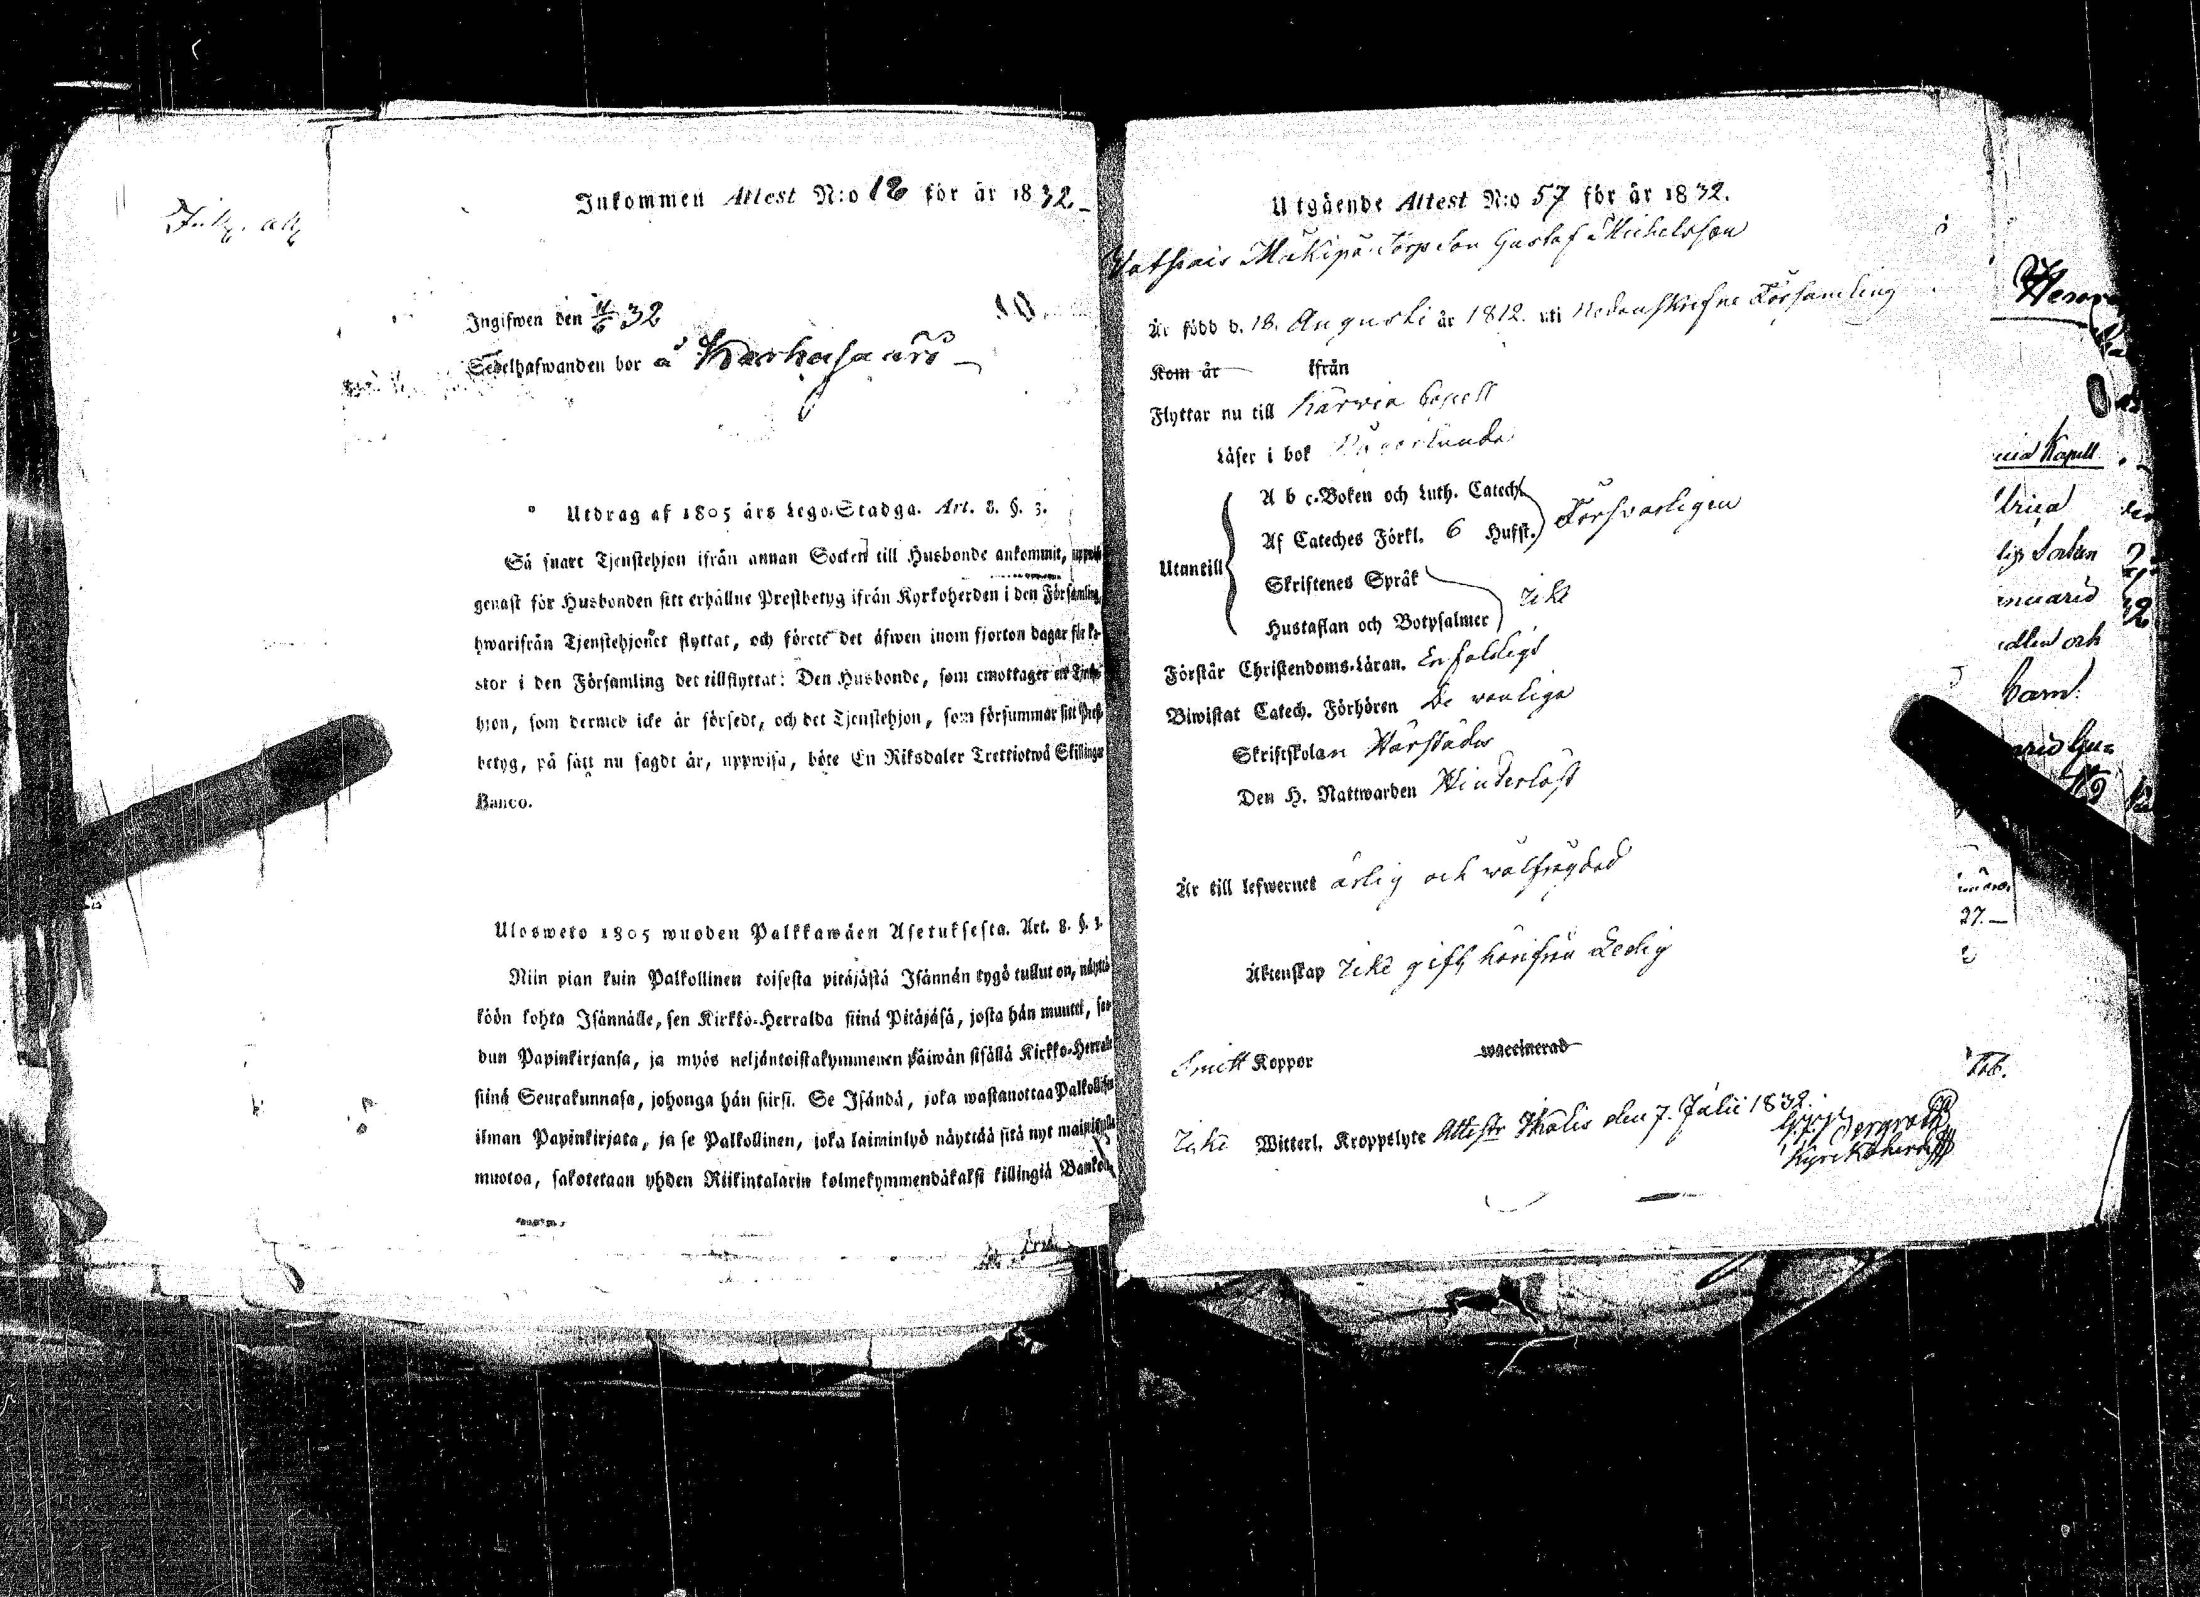 Inkommen Attest N:o 18 för år 1832.
Ingifwen den 32
Sedelhafwanden bor å
Utdrag af 1805 års Lego-Stadga. Art. 8. §. 3.
Så snart Tjenstehjon ifrån annan Socken till Husbonde ankommit,
genast för Husbonden sitt erhållne Prestbetyg ifrån Kyrkoherden i den Församling,
hwarifrån Tjenstehjonet flyttat, och förete det äfwen inom fjorton dagar för
stor i den Församling det tillflyttat: Den Husbonde, som emottager ett Tjenste-
hjon, som dermed icke är försedt, och det Tjenstehjon, som försummar sitt Prest-
betyg, på sätt nu sagdt är, uppwisa, böte En Riksdaler Trettiotwå Skillingar
Banco.
Ulosweto 1805 wuoden Palkkawäen Asetuksesta. Art. 8. §. 3.
Niin pian kuin Palkollinen toisesta pitäjästä Isännän tygö tullut on, näyttä-
köön kohta Isännälle, sen Kirkko-Herralda siinä Pitäjäsä, josta hän muutti, saa-
dun Papinkirjansa, ja myös neljäntoistakymmenen päiwän sisällä Kirkko-Herralle
siinä Seurakunnasa, johonga hän siirsi. Se Isändä, joka wastanottaa Palkollisen
ilman Papinkirjata, ja se Palkollinen, joka laiminlyö näyttää sitä nyt mainitulla
muotoa, sakotetaan yhden Riikintalarin kolmekymmendäkaksi killingiä Bankoa.
Utgående Attest N:o 57 för år 1832.
Mäkipä Torp Son Gustaf Michelsson
Är född d. 18. Augusti år 1812. uti Nedanskrefne Församling
Kom år ifrån
Flyttar nu till Karvia Capell
Läser i bok
A b c-Boken och Luth. Catech.
Försvarligen
Af Cateches Förkl. 6 Hufst.
Utantill
Skriftenes Språk
Icke
Hustaflan och Botpsalmer
Förstår Christendoms-Läran. Enfaldigt
Biwistat Catech. Förhören De vanliga
Skriftskolan Härstädes
Den H. Nattwarden Hinderlöst
Är till lefwernet ärlig och wälfrägdad
Äktenskap Icke gift, härifrån Ledig
Smitt Koppor waccinerad
Icke Witterl. Kroppslyte Attestr Ikalis den 7. Julii 1832.
Bergroth
Kyrkoherde
Kapell
27.